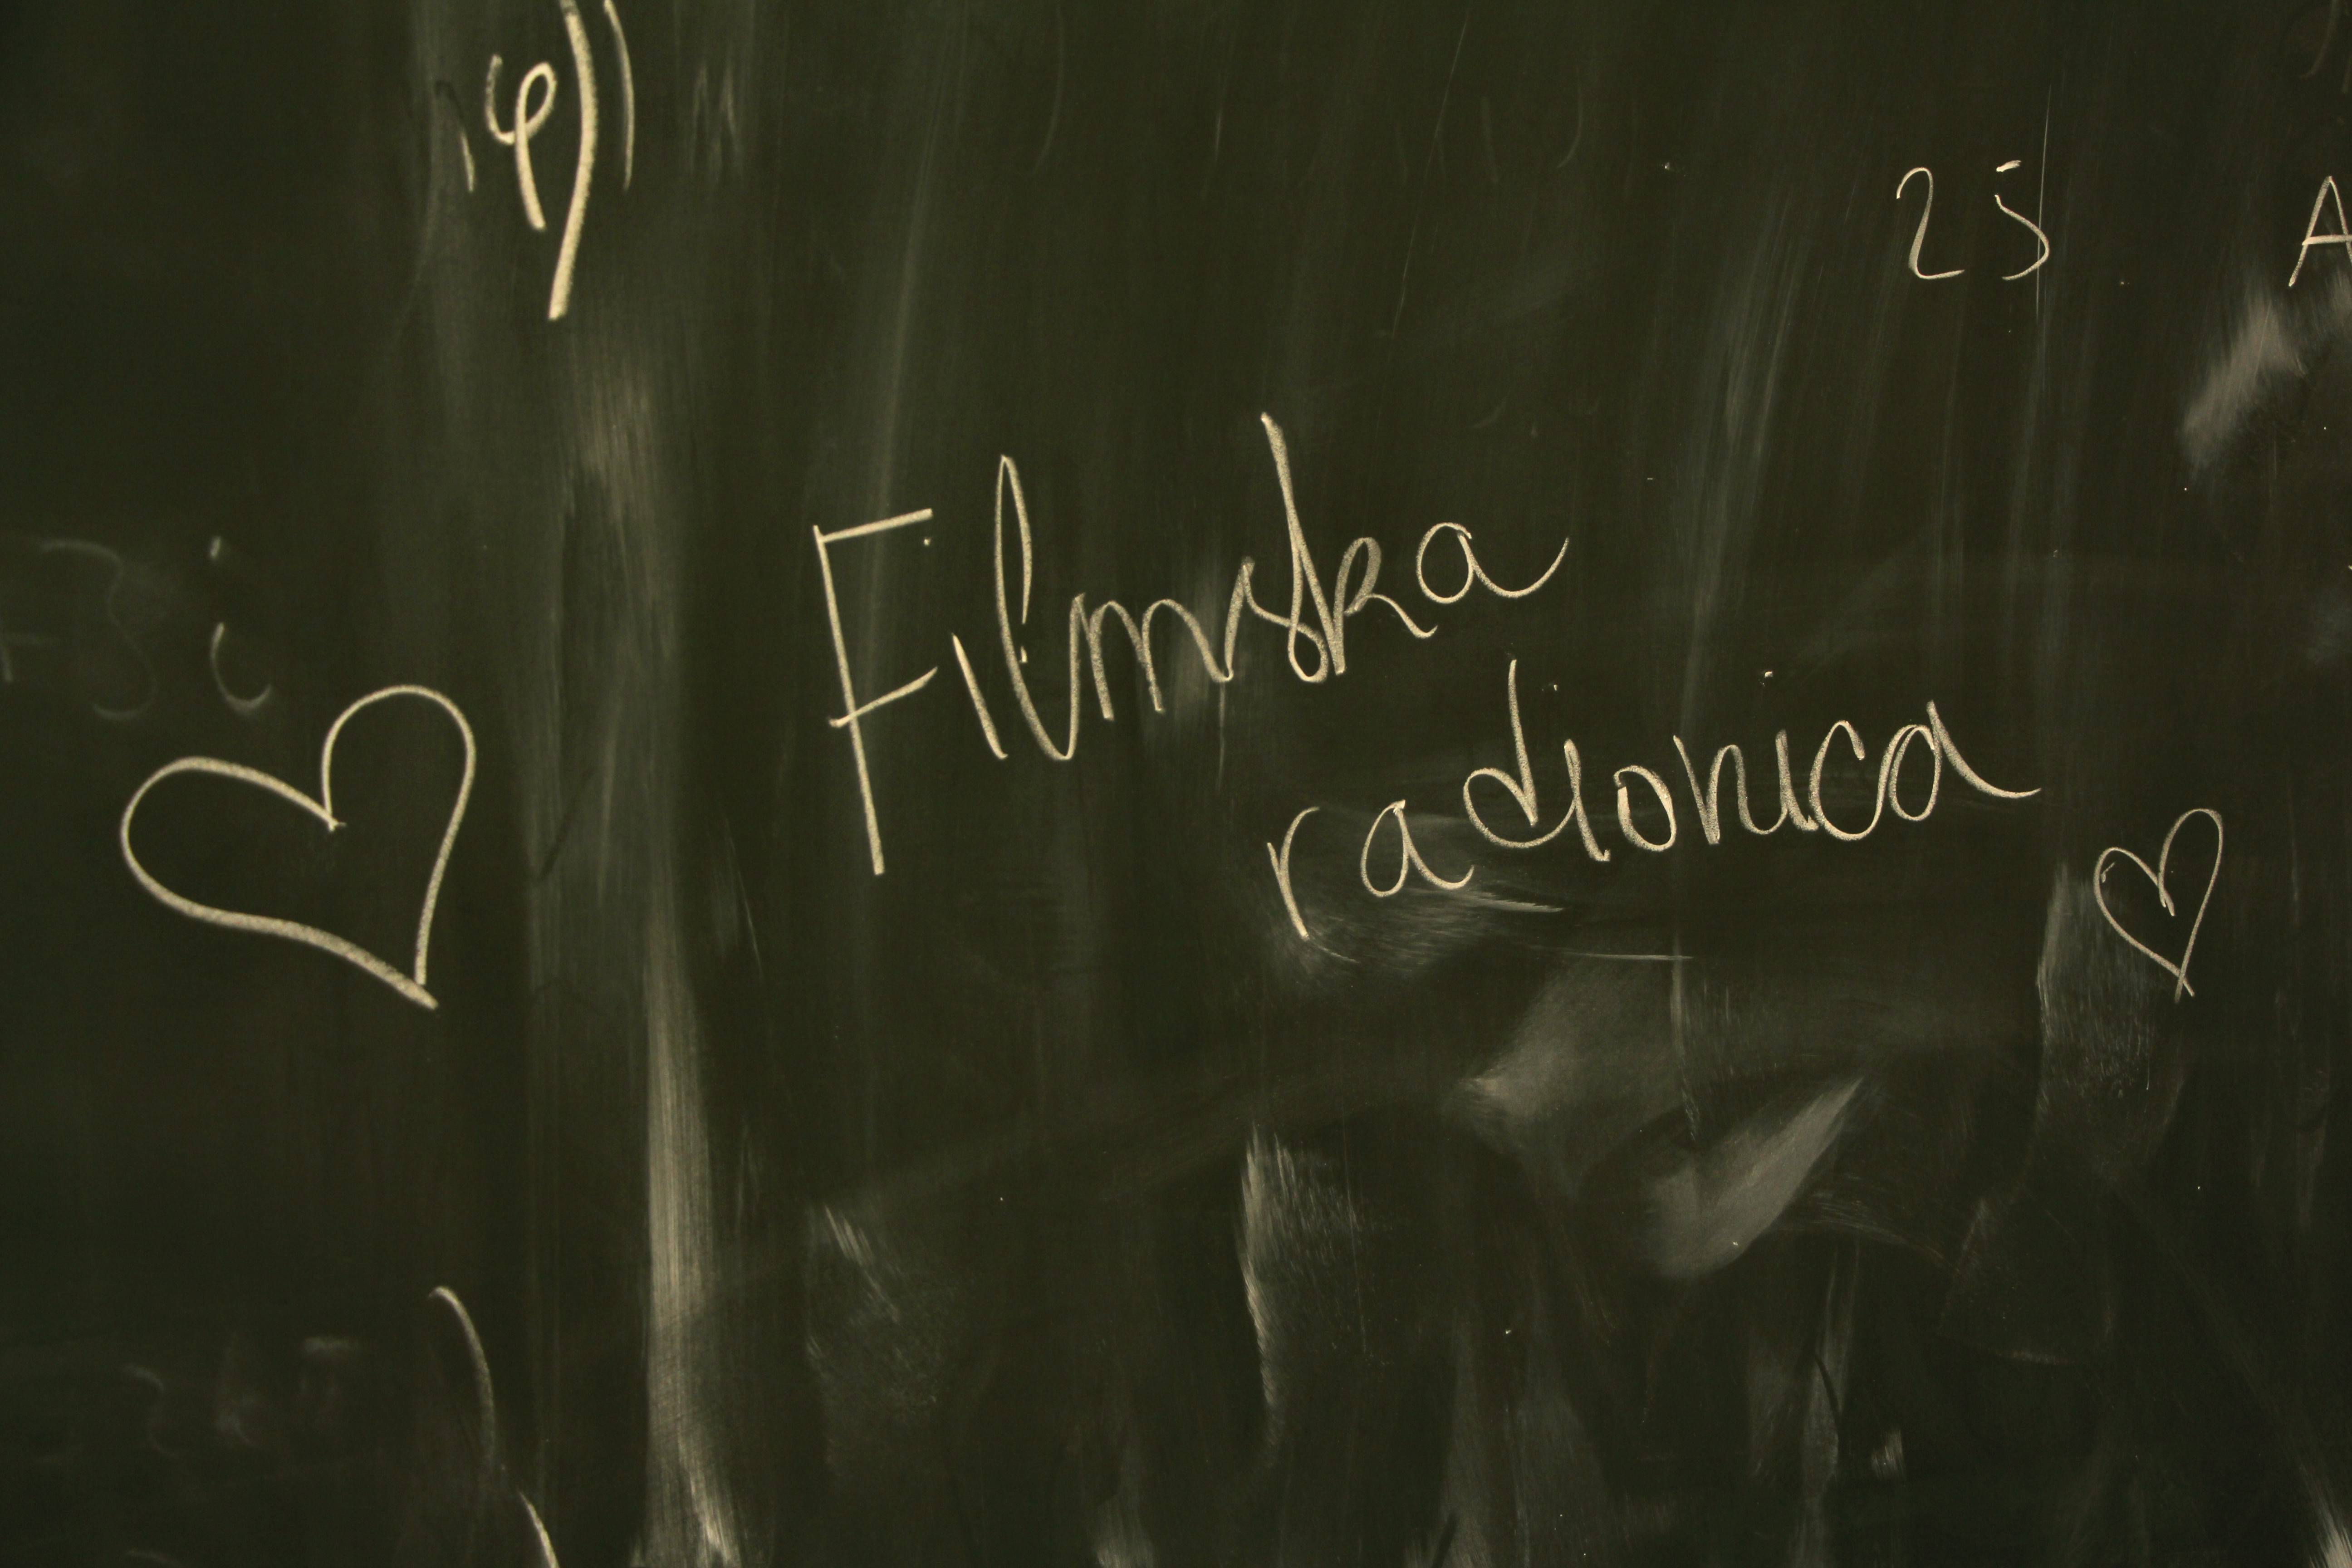 φ))
25 A
Filmska
radionica